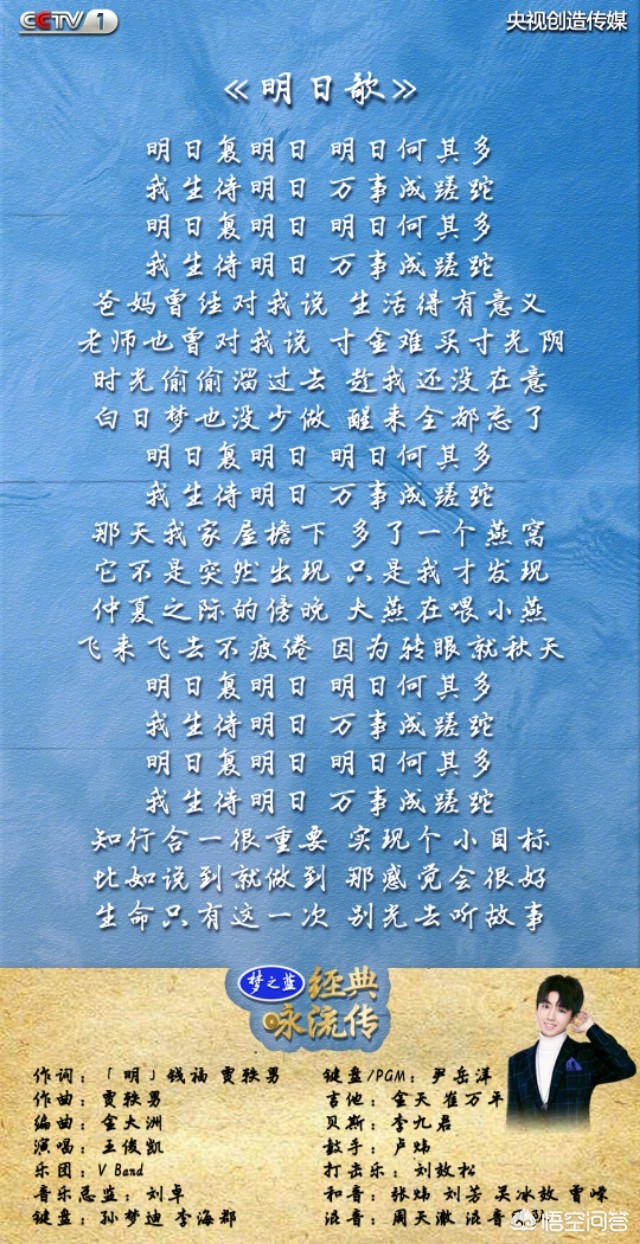 CCTV 1
央视创造传媒
《明日歌》
明日复明日 明日何其多
我生待明日 万事成蹉跎
明日复明日 明日何其多
我生待明日 万事成蹉跎
爸妈曾经对我说 生活得有意义
老师也曾对我说 寸金难买寸光阴
时光偷偷溜过去 趁我还没在意
白日梦也没少做 醒来全都忘了
明日复明日 明日何其多
我生待明日 万事成蹉跎
那天我家屋檐下 多了一个燕窝
它不是突然出现 只是我才发现
仲夏之际的傍晚 大燕在喂小燕
飞来飞去不疲倦 因为转眼就秋天
明日复明日 明日何其多
我生待明日 万事成蹉跎
明日复明日 明日何其多
我生待明日 万事成蹉跎
知行合一很重要 实现个小目标
比如说到就做到 那感觉会很好
生命只有这一次 别光去听故事
梦之蓝 经典
咏流传
作词：「明」钱福 贾轶男
作曲：贾轶男
编曲：金大洲
演唱：王俊凯
乐团：V Band
音乐总监：刘卓
键盘：孙梦迪 李海郡
键盘/PGM：尹岳洋
吉他：金天 崔万平
贝斯：李九君
鼓手：卢炜
打击乐：刘效松
和音：张炜 刘芳 吴冰放 雷嵘
混音：周天澈 混音
悟空问答